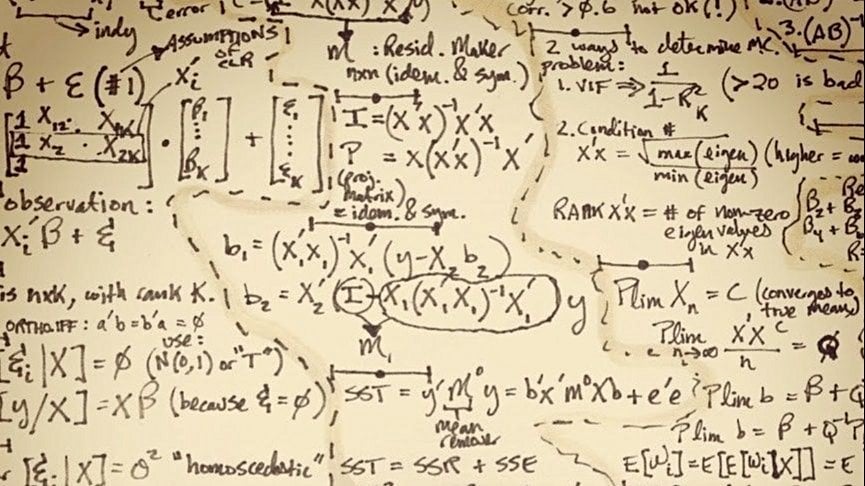 → indy
error
ASSUMPTIONS
OF
CLR
β + ε (#1)
Xi'
[1 X12 . X1K
1 X2 . X2K
1] · [β1
⋮
βK] + [ε1
⋮
εK]
observation:
Xi'β + ε
is nxK, with rank K.
ORTHO. IFF: a'b = b'a = ∅
use:
[εi|X] = ∅ (N(0,1) or "T")
[y/X] = Xβ (because ε = ∅)
[εi|X] = σ² "homoscedastic"
M : Resid. Maker
nxn (idem. & sym.)
I = (X'X)⁻¹X'X
P = X(X'X)⁻¹X'
(proj.
matrix)
= idem. & sym.
b1 = (X1'X1)⁻¹X1'(y-X2b2)
b2 = X2'(I-X1(X1'X1)⁻¹X1')y
M1
SST = y'M⁰y = b'x'm⁰Xb + e'e
mean
remover
SST = SSR + SSE
corr. > 0.6 not ok (!)
2 ways to determine M.C.
problem:
1. VIF ⇒ 1/(1-R²K) (>20 is bad
2. Condition #
X'X = √(max(eigen)/min(eigen)) (higher =
RANK X'X = # of non-zero
eigenvalues
in X'X
3. (AB)⁻¹
B2 + B
B4 + B
Plim Xn = C (converges to
true means)
Plim n→∞ XX'/n =
Plim b = β + Q
Plim b = β + Q⁻¹
E[wi] = E[E[wi|X]] = E